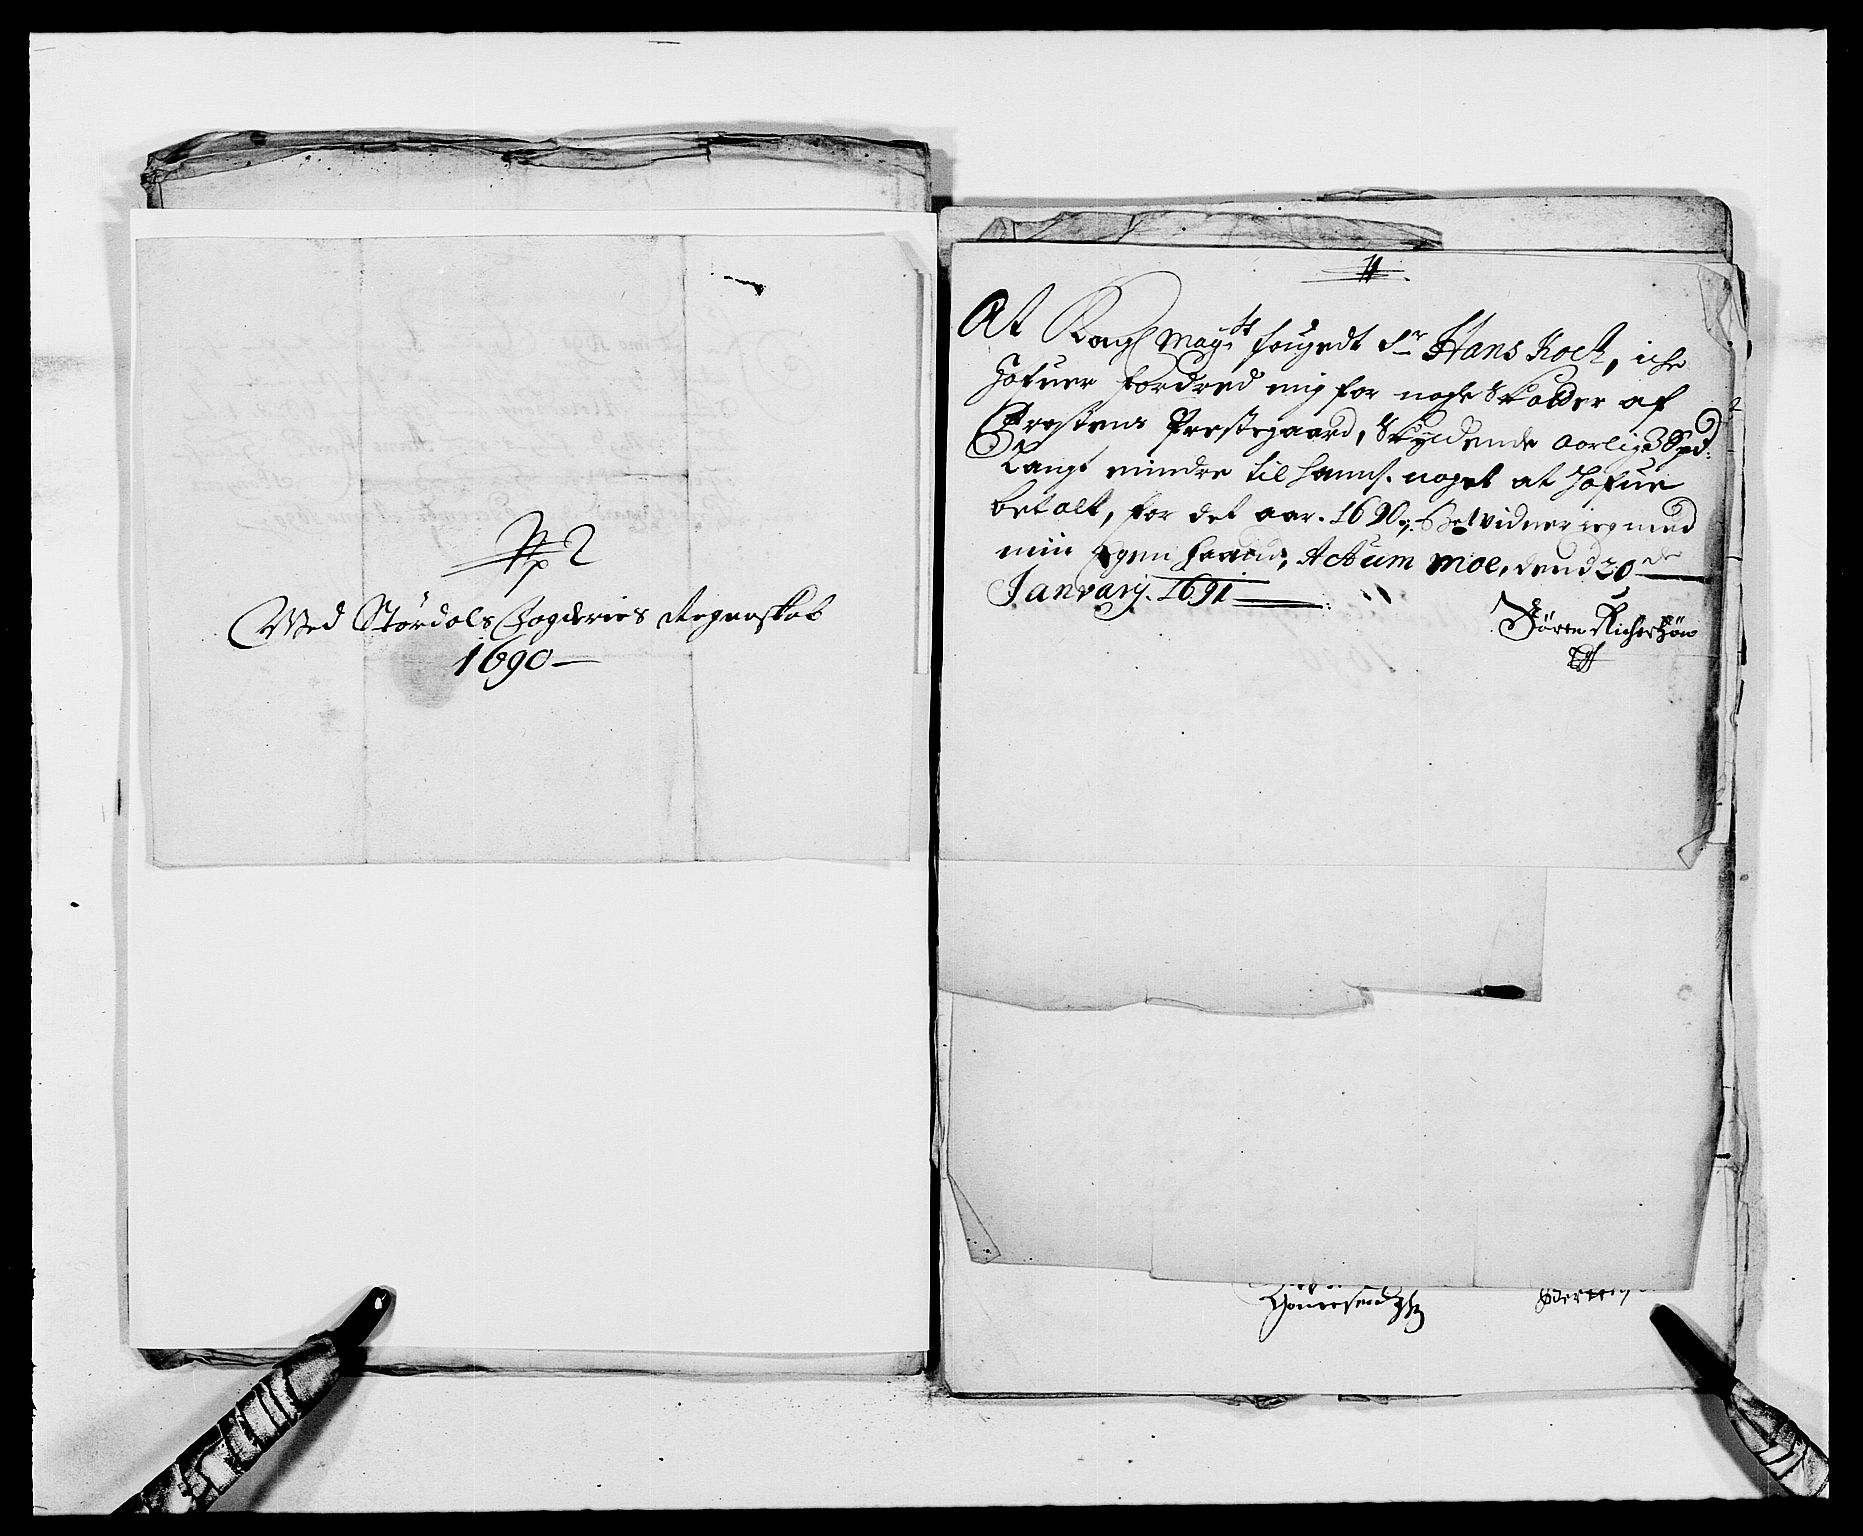 No 2
Med Størdals Fogderies Regenskab
1690
11
At Kongl Mayts fougedt Sr Hans Koch, iche
hafuer fordred mig for nogle Skatter af
Frostens Prestegaard, Skyldende aarlig 3 Spd:
langt mindre til hannem noget at hafue
betalt, for det aar 1690, Betvidner ieg med
min Egen haand, Actum Moe, dend 20de
January 1691
Sören